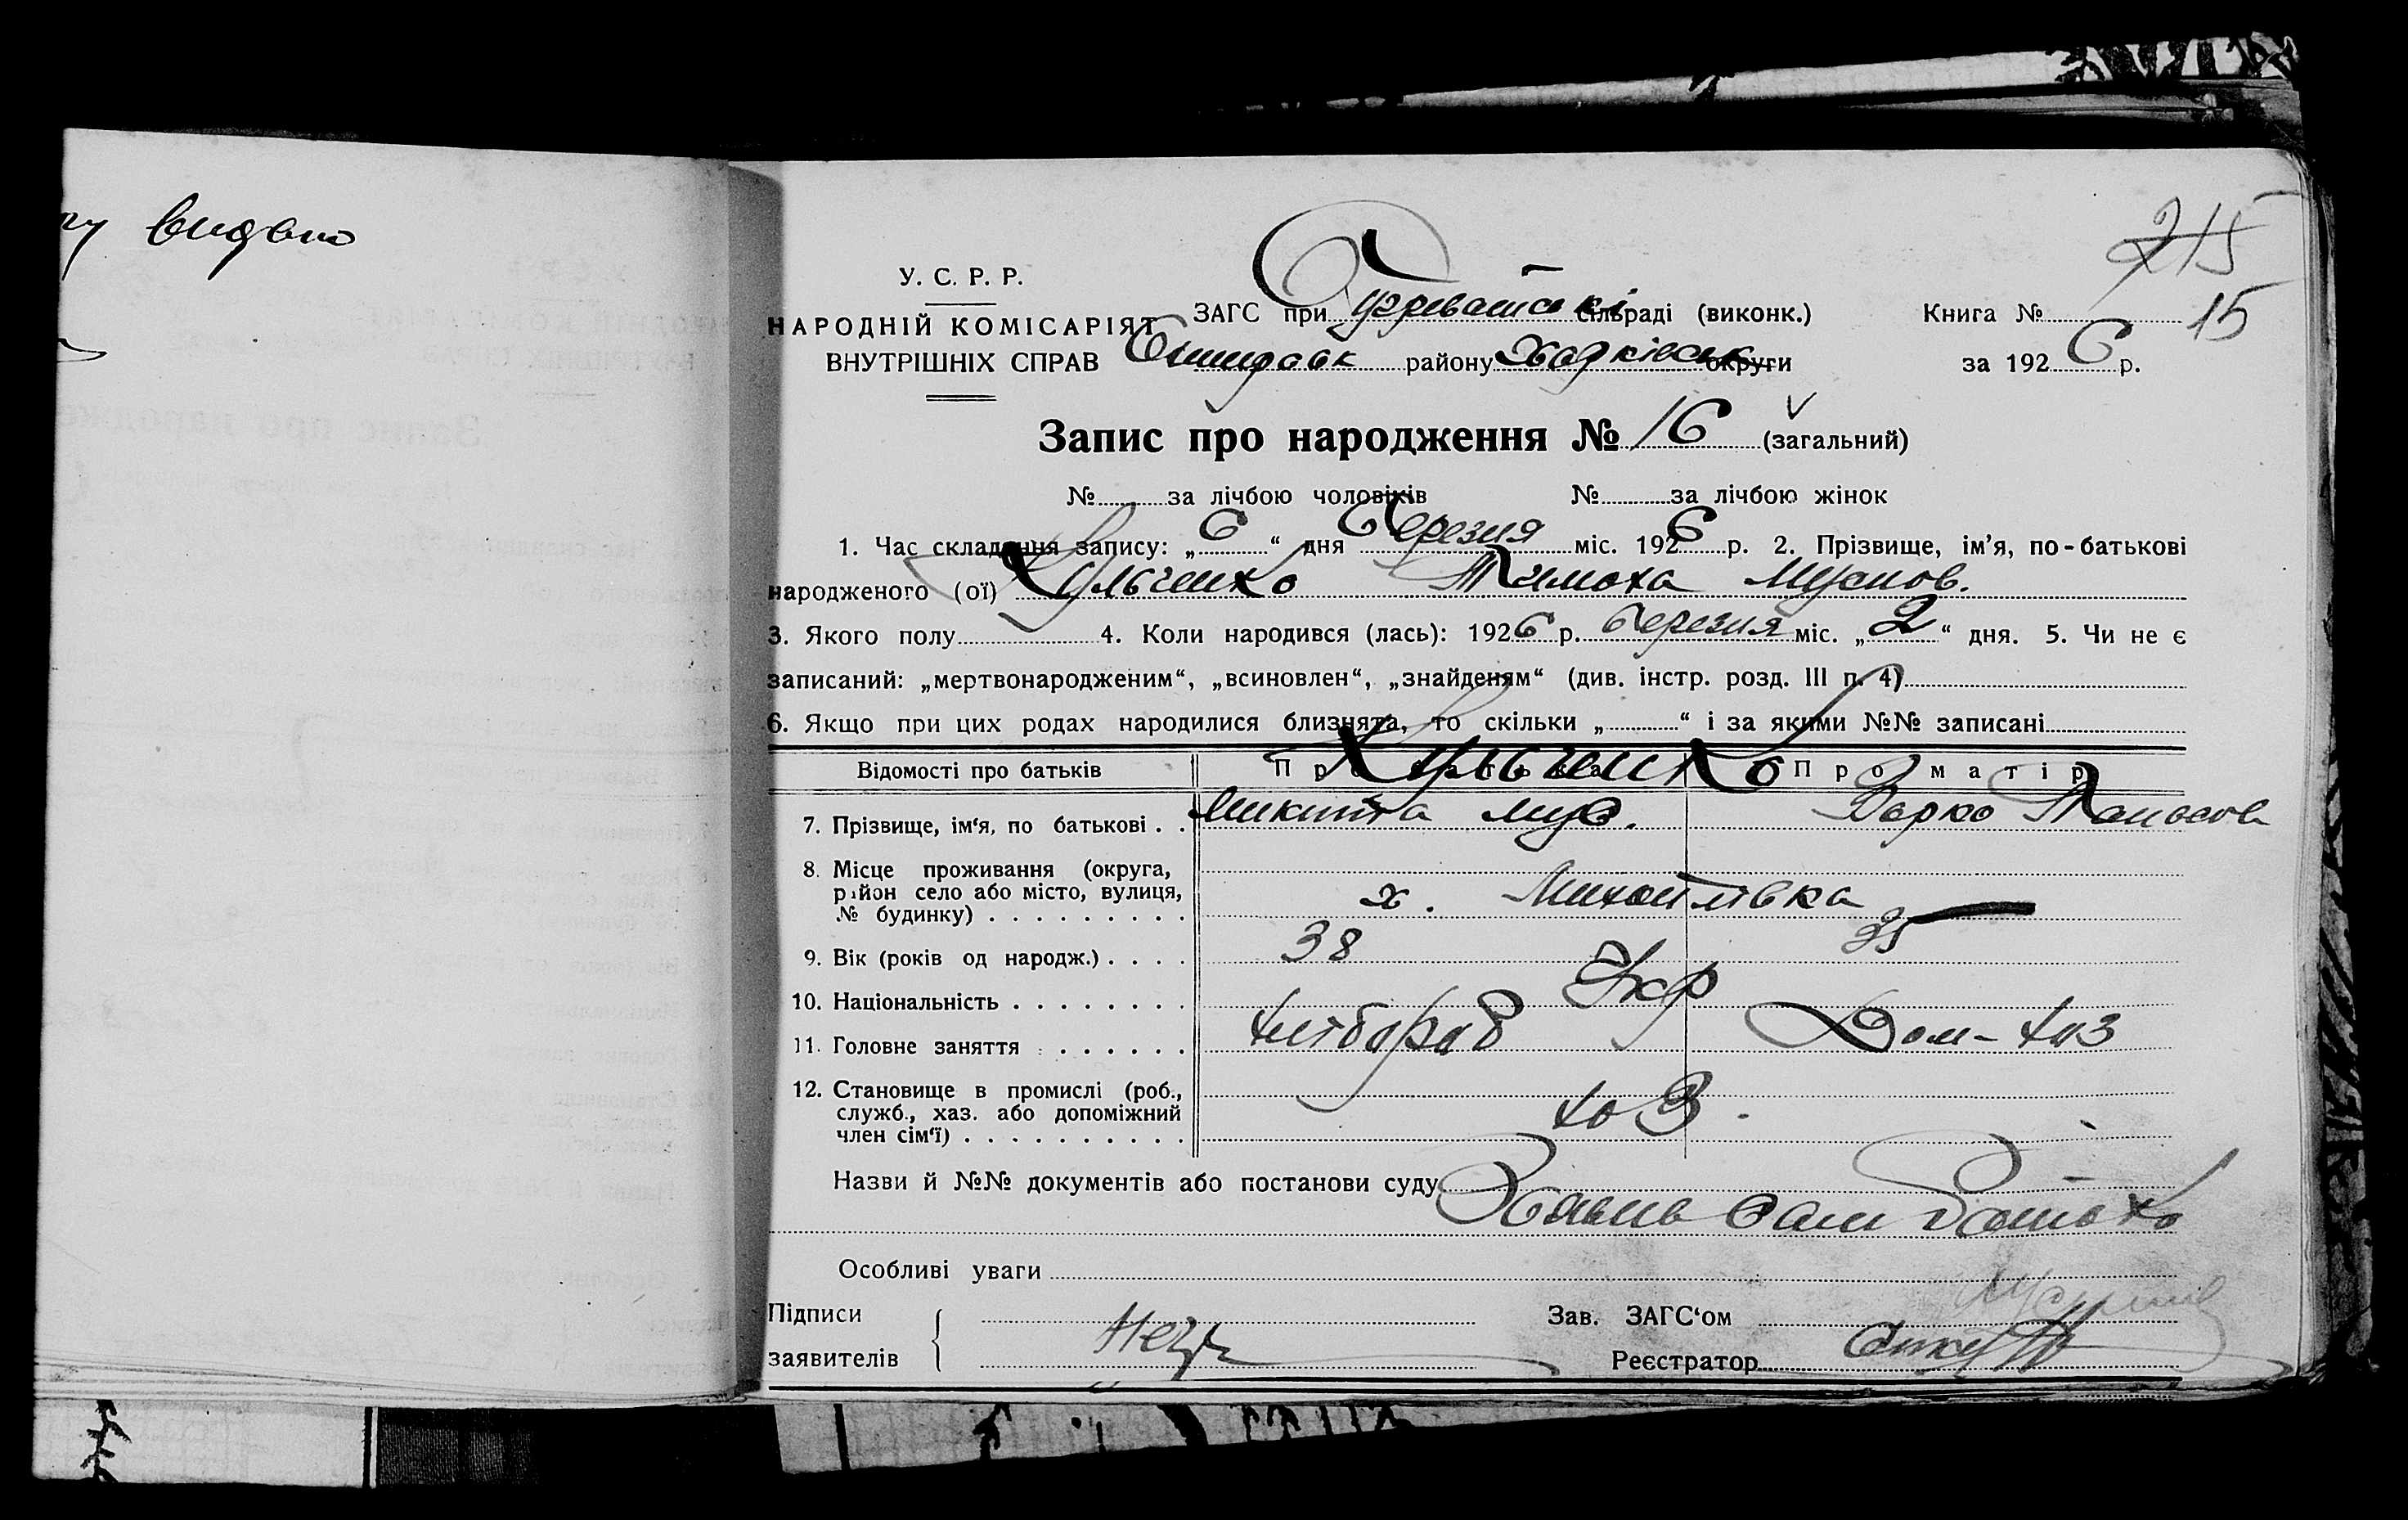 видано
215
15
У. С. Р. Р.
НАРОДНІЙ КОМІСАРІЯТ
ВНУТРІШНІХ СПРАВ
ЗАГС при сільраді (виконк.)
району Харківськ округи
Книга №
за 1926 р.
Запис про народження № 16 (загальний)
№ за лічбою чоловіків № за лічбою жінок
1. Час складання запису: „6“ дня березня міс. 1926 р. 2. Прізвище, ім'я, по-батькові
народженого (ої) Кульченко Тимоха
3. Якого полу 4. Коли народився (лась): 1926 р. березня міс. „2“ дня. 5. Чи не є
записаний: „мертвонародженим“, „всиновлен“, „знайденям“ (див. інстр. розд. III п. 4)
6. Якщо при цих родах народилися близнята, то скільки „ “ і за якими №№ записані
Відомості про батьків Про батька Про матір
Кульченко
7. Прізвище, ім'я, по батькові . . Микита Дарка Панасов
8. Місце проживання (округа,
район село або місто, вулиця,
№ будинку) . . . . . . . . . х. Михайлівка
9. Вік (років од народж.) . . . . 38 35
10. Національність . . . . . . . . Укр
11. Головне заняття . . . . . . . хлібороб Дом-хоз
12. Становище в промислі (роб.,
служб., хаз. або допоміжний
член сім'ї) . . . . . . . . . . хоз.
Назви й №№ документів або постанови суду
сам батько
Особливі уваги
Підписи
заявителів
Зав. ЗАГС'ом
Реєстратор